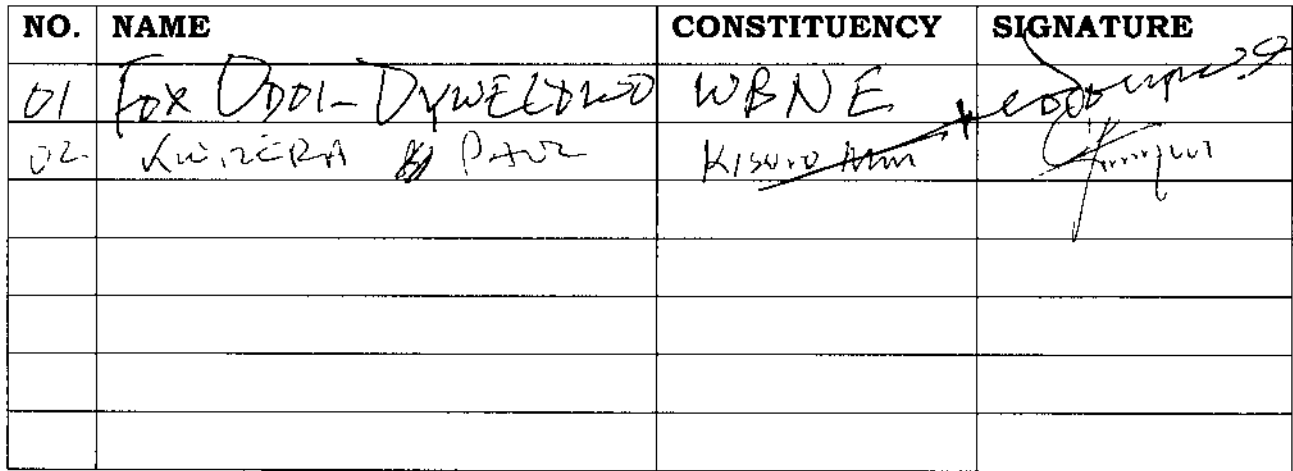 NO. NAME CONSTITUENCY SIGNATURE
01 FOX ODOI-OYWELOWO WBNE
02. KWIZERA PAUL KISORO